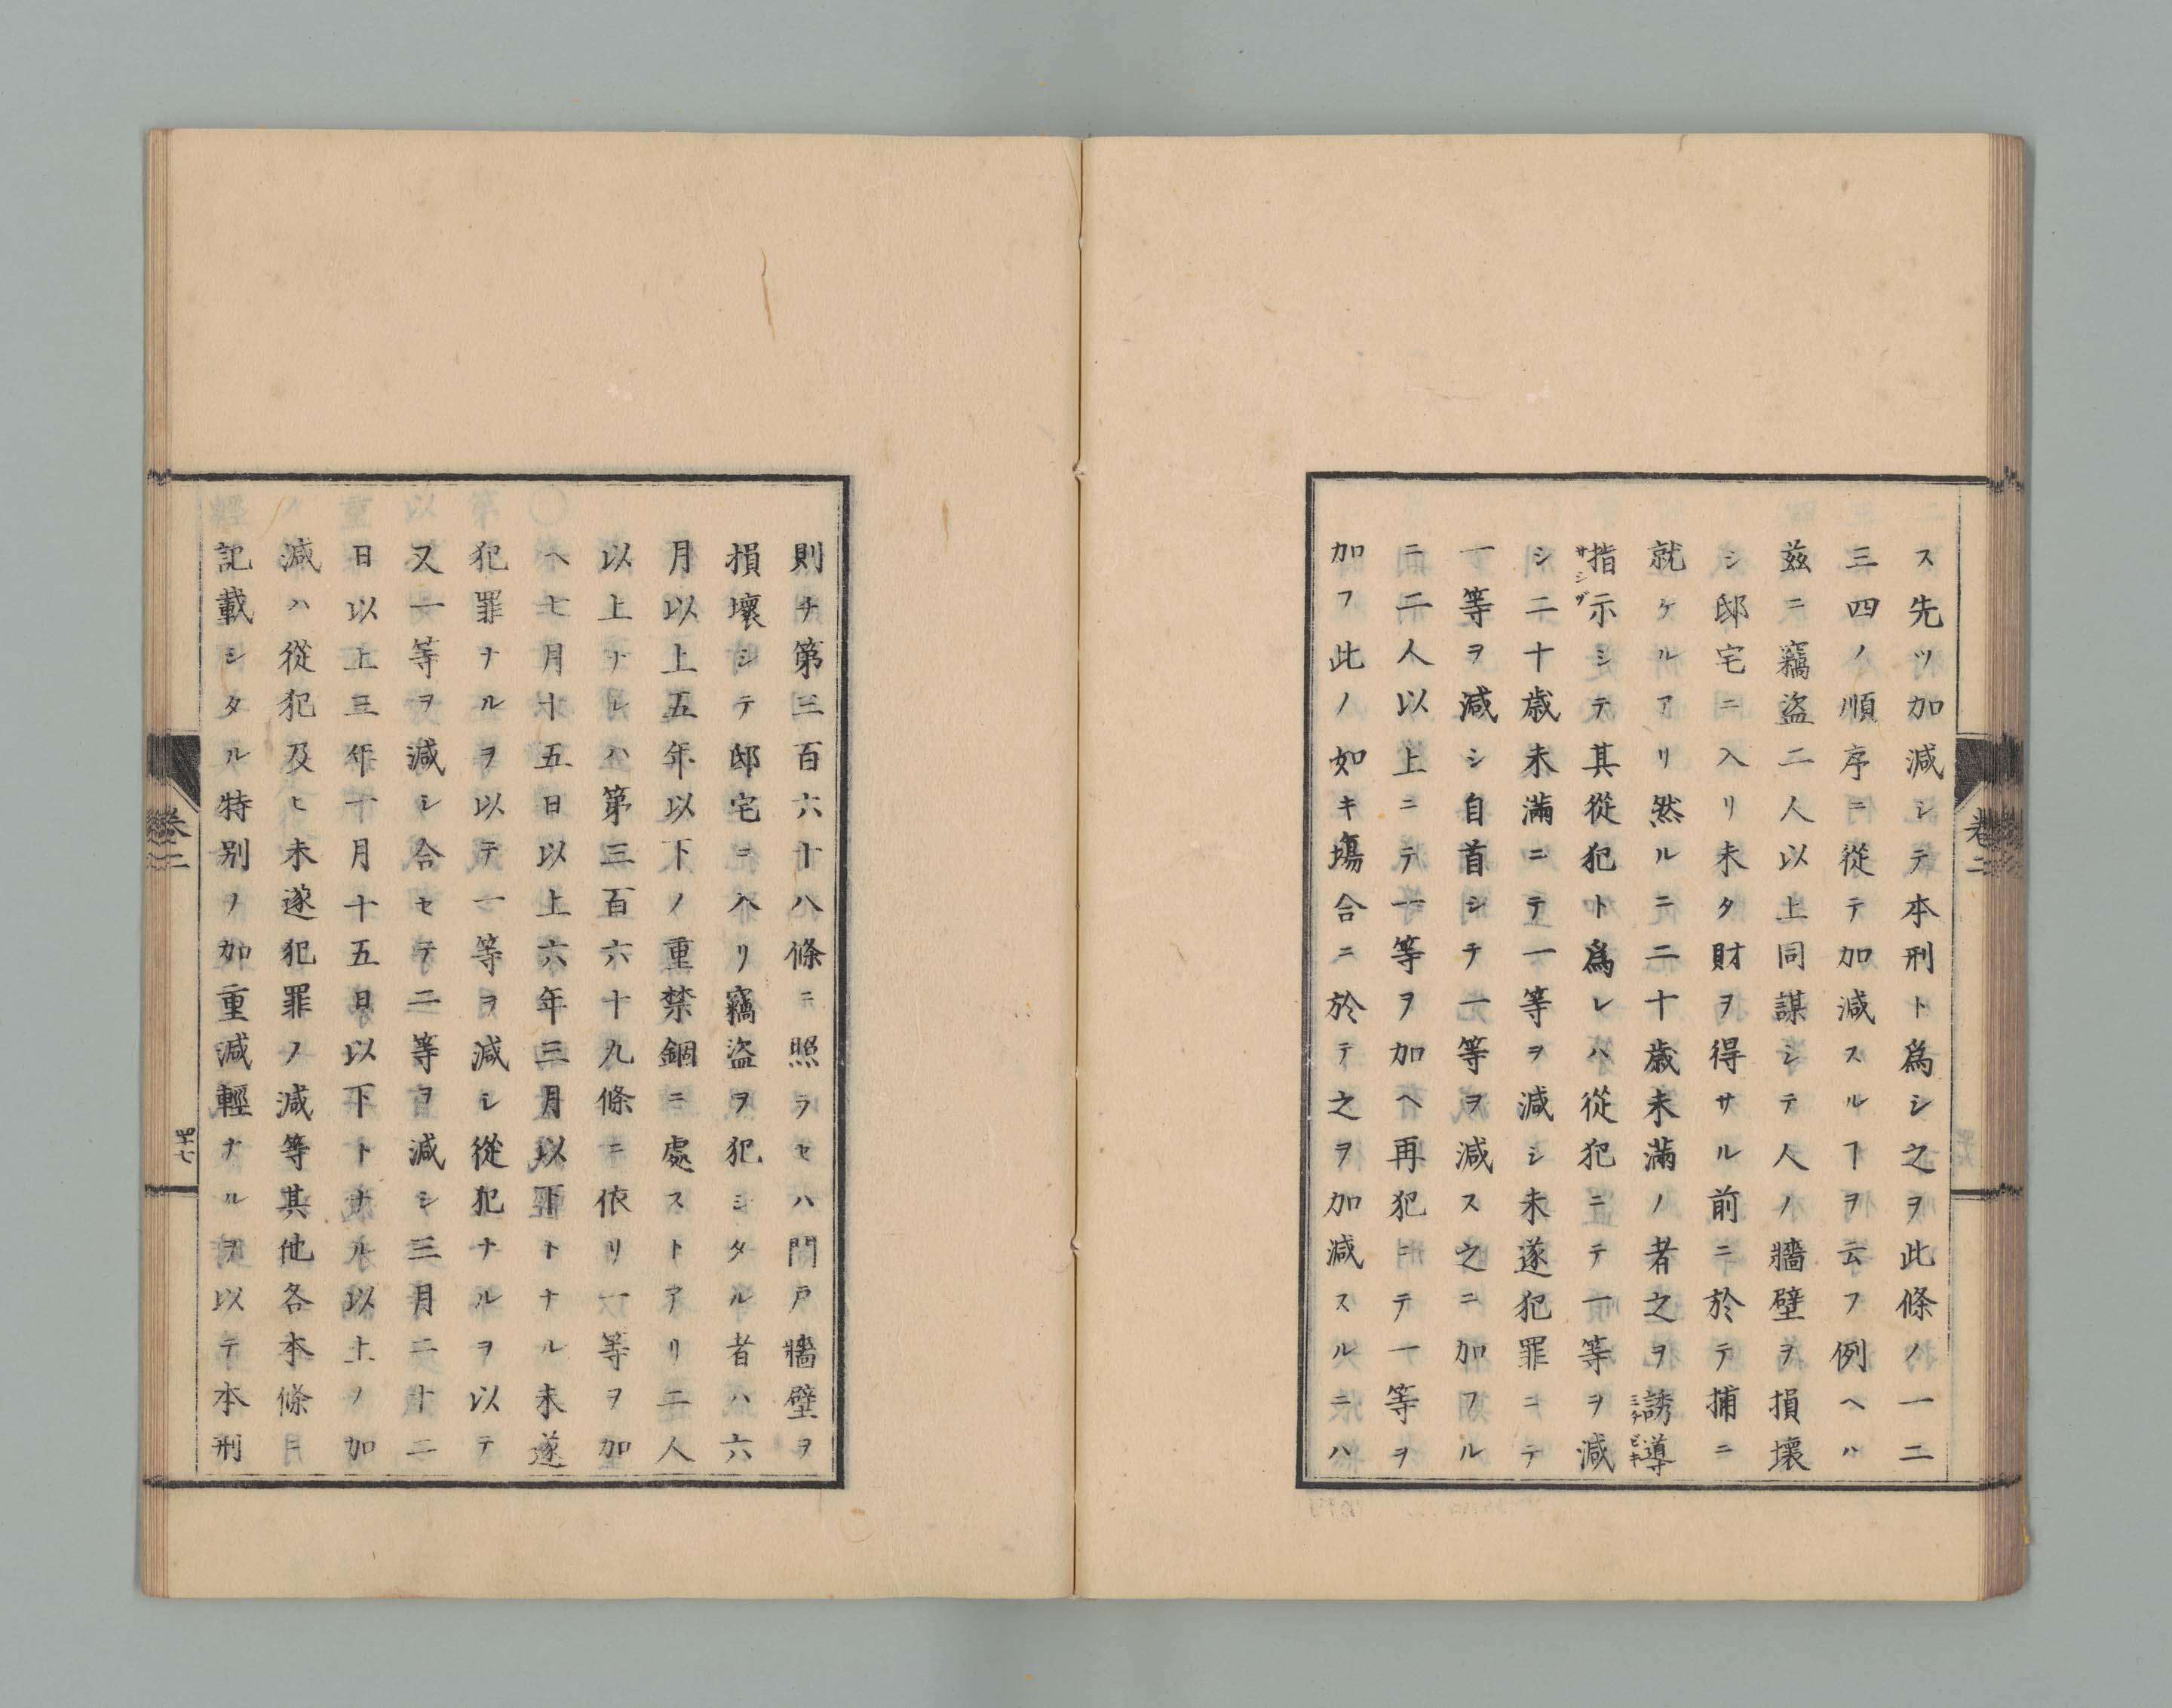 ス先ツ加減シテ本刑ト爲シ之ヲ此條ノ一二
三四ノ順序ニ從テ加減スルヿヲ云フ例ヘハ
茲ニ竊盜二人以上同謀シテ人ノ牆壁ヲ損壞
シ邸宅ニ入リ未タ財ヲ得サル前ニ於テ捕ニ
就ケルアリ然ルニ二十歳未滿ノ者之ヲ誘導
ミチビキ
指示シテ其從犯ト爲レハ從犯ニテ一等ヲ減
サシヅ
シ二十歳未滿ニテ一等ヲ減シ未遂犯罪ニテ
一等ヲ減シ自首シテ一等ヲ減ス之ニ加フル
ニ二人以上ニテ一等ヲ加ヘ再犯ニテ一等ヲ
加フ此ノ如キ塲合ニ於テ之ヲ加減スルニハ
卷二
則チ第三百六十八條ニ照ラセハ門戸牆壁ヲ
損壞シテ邸宅ニ入リ竊盜ヲ犯シタル者ハ六
月以上五年以下ノ重禁錮ニ處ストアリ二人
以上ナレハ第三百六十九條ニ依リ一等ヲ加
ヘ七月十五日以上六年三月以下トナル未遂
犯罪ナルヲ以テ一等ヲ減シ從犯ナルヲ以テ
又一等ヲ減シ合セテ二等ヲ減シ三月二十二
日以上三年十月十五日以下トナル以上ノ加
減ハ從犯及ヒ未遂犯罪ノ減等其他各本條ニ
記載シタル特別ノ加重減輕ナルヲ以テ本刑
卷二
四十七